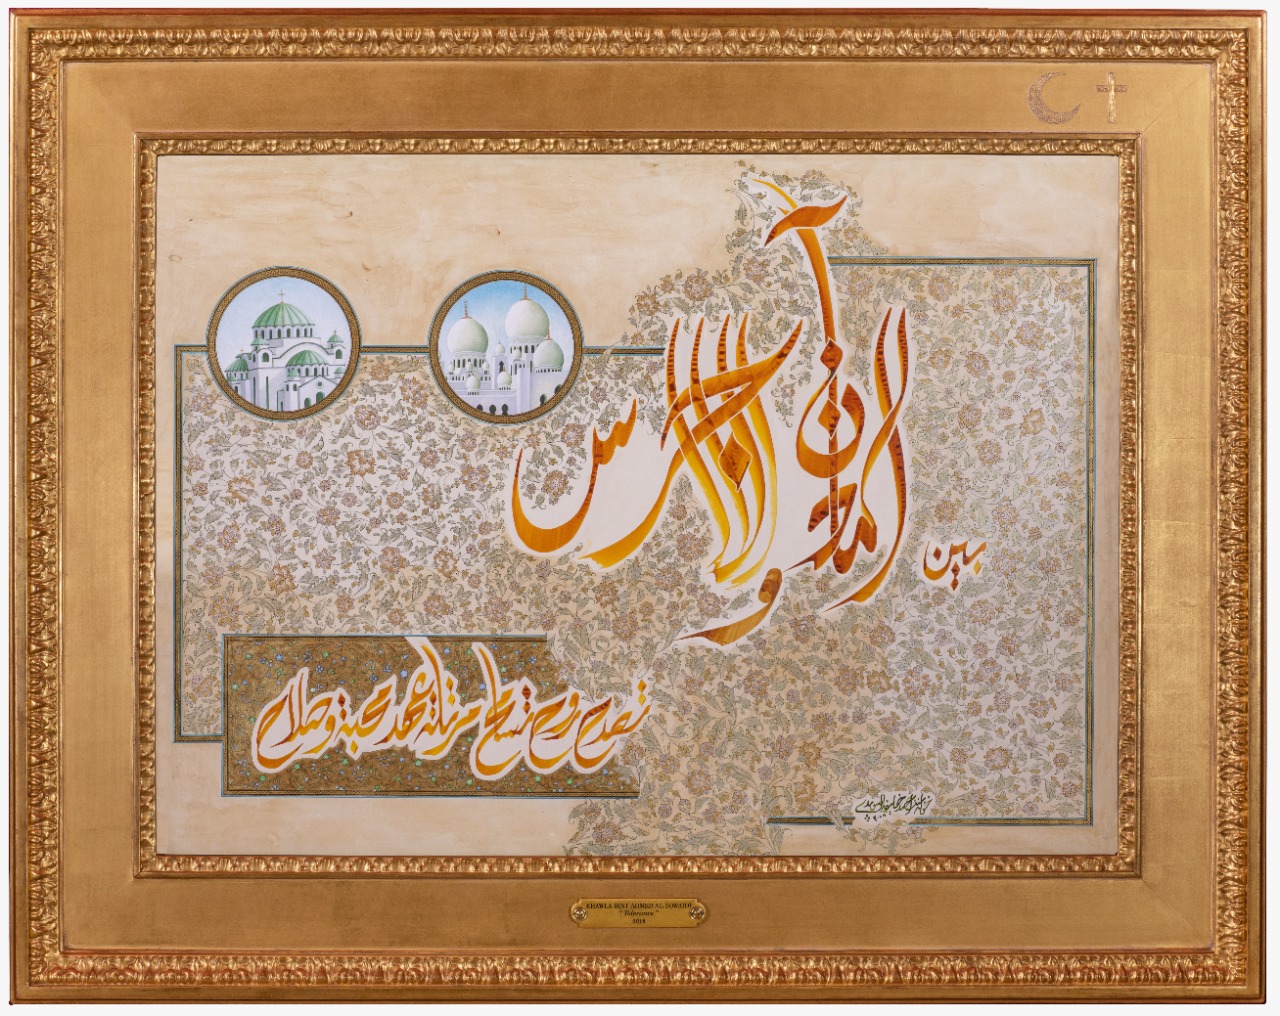 بين المآذن والاجراس
تصدح روح تسامح مرتلة عهد محبة وصلاح
KHAWLA BINT AHMED AL SOWAIDI
"Tolerance"
2018